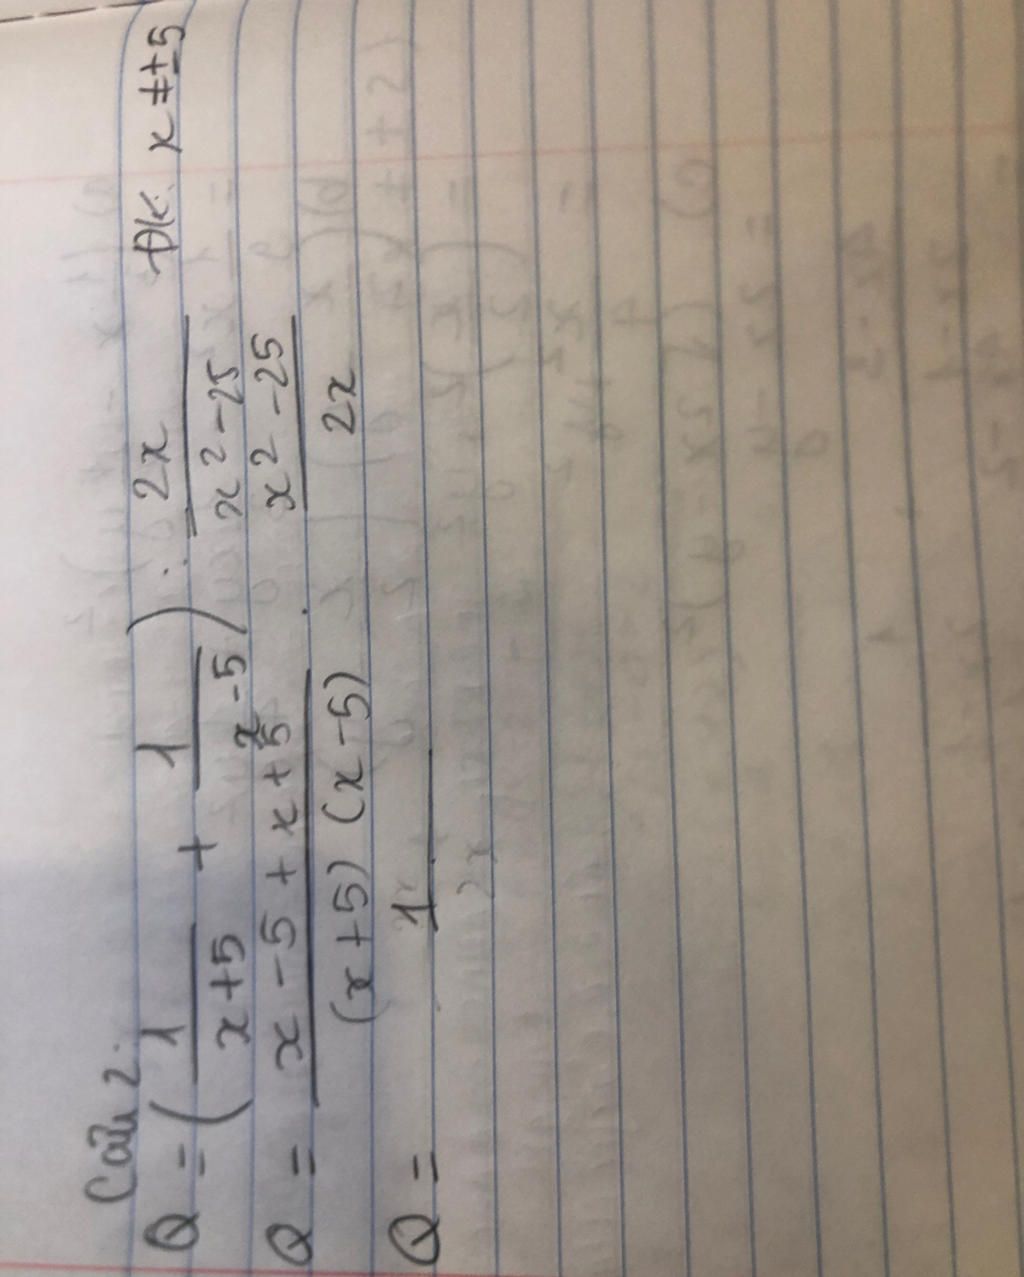 Câu 2.
Q = ( 1/(x+5) + 1/(x-5) ) : 2x/(x²-25) ĐK: x ≠ ±5
Q = (x-5+x+5)/((x+5)(x-5)) . (x²-25)/2x
Q = 1